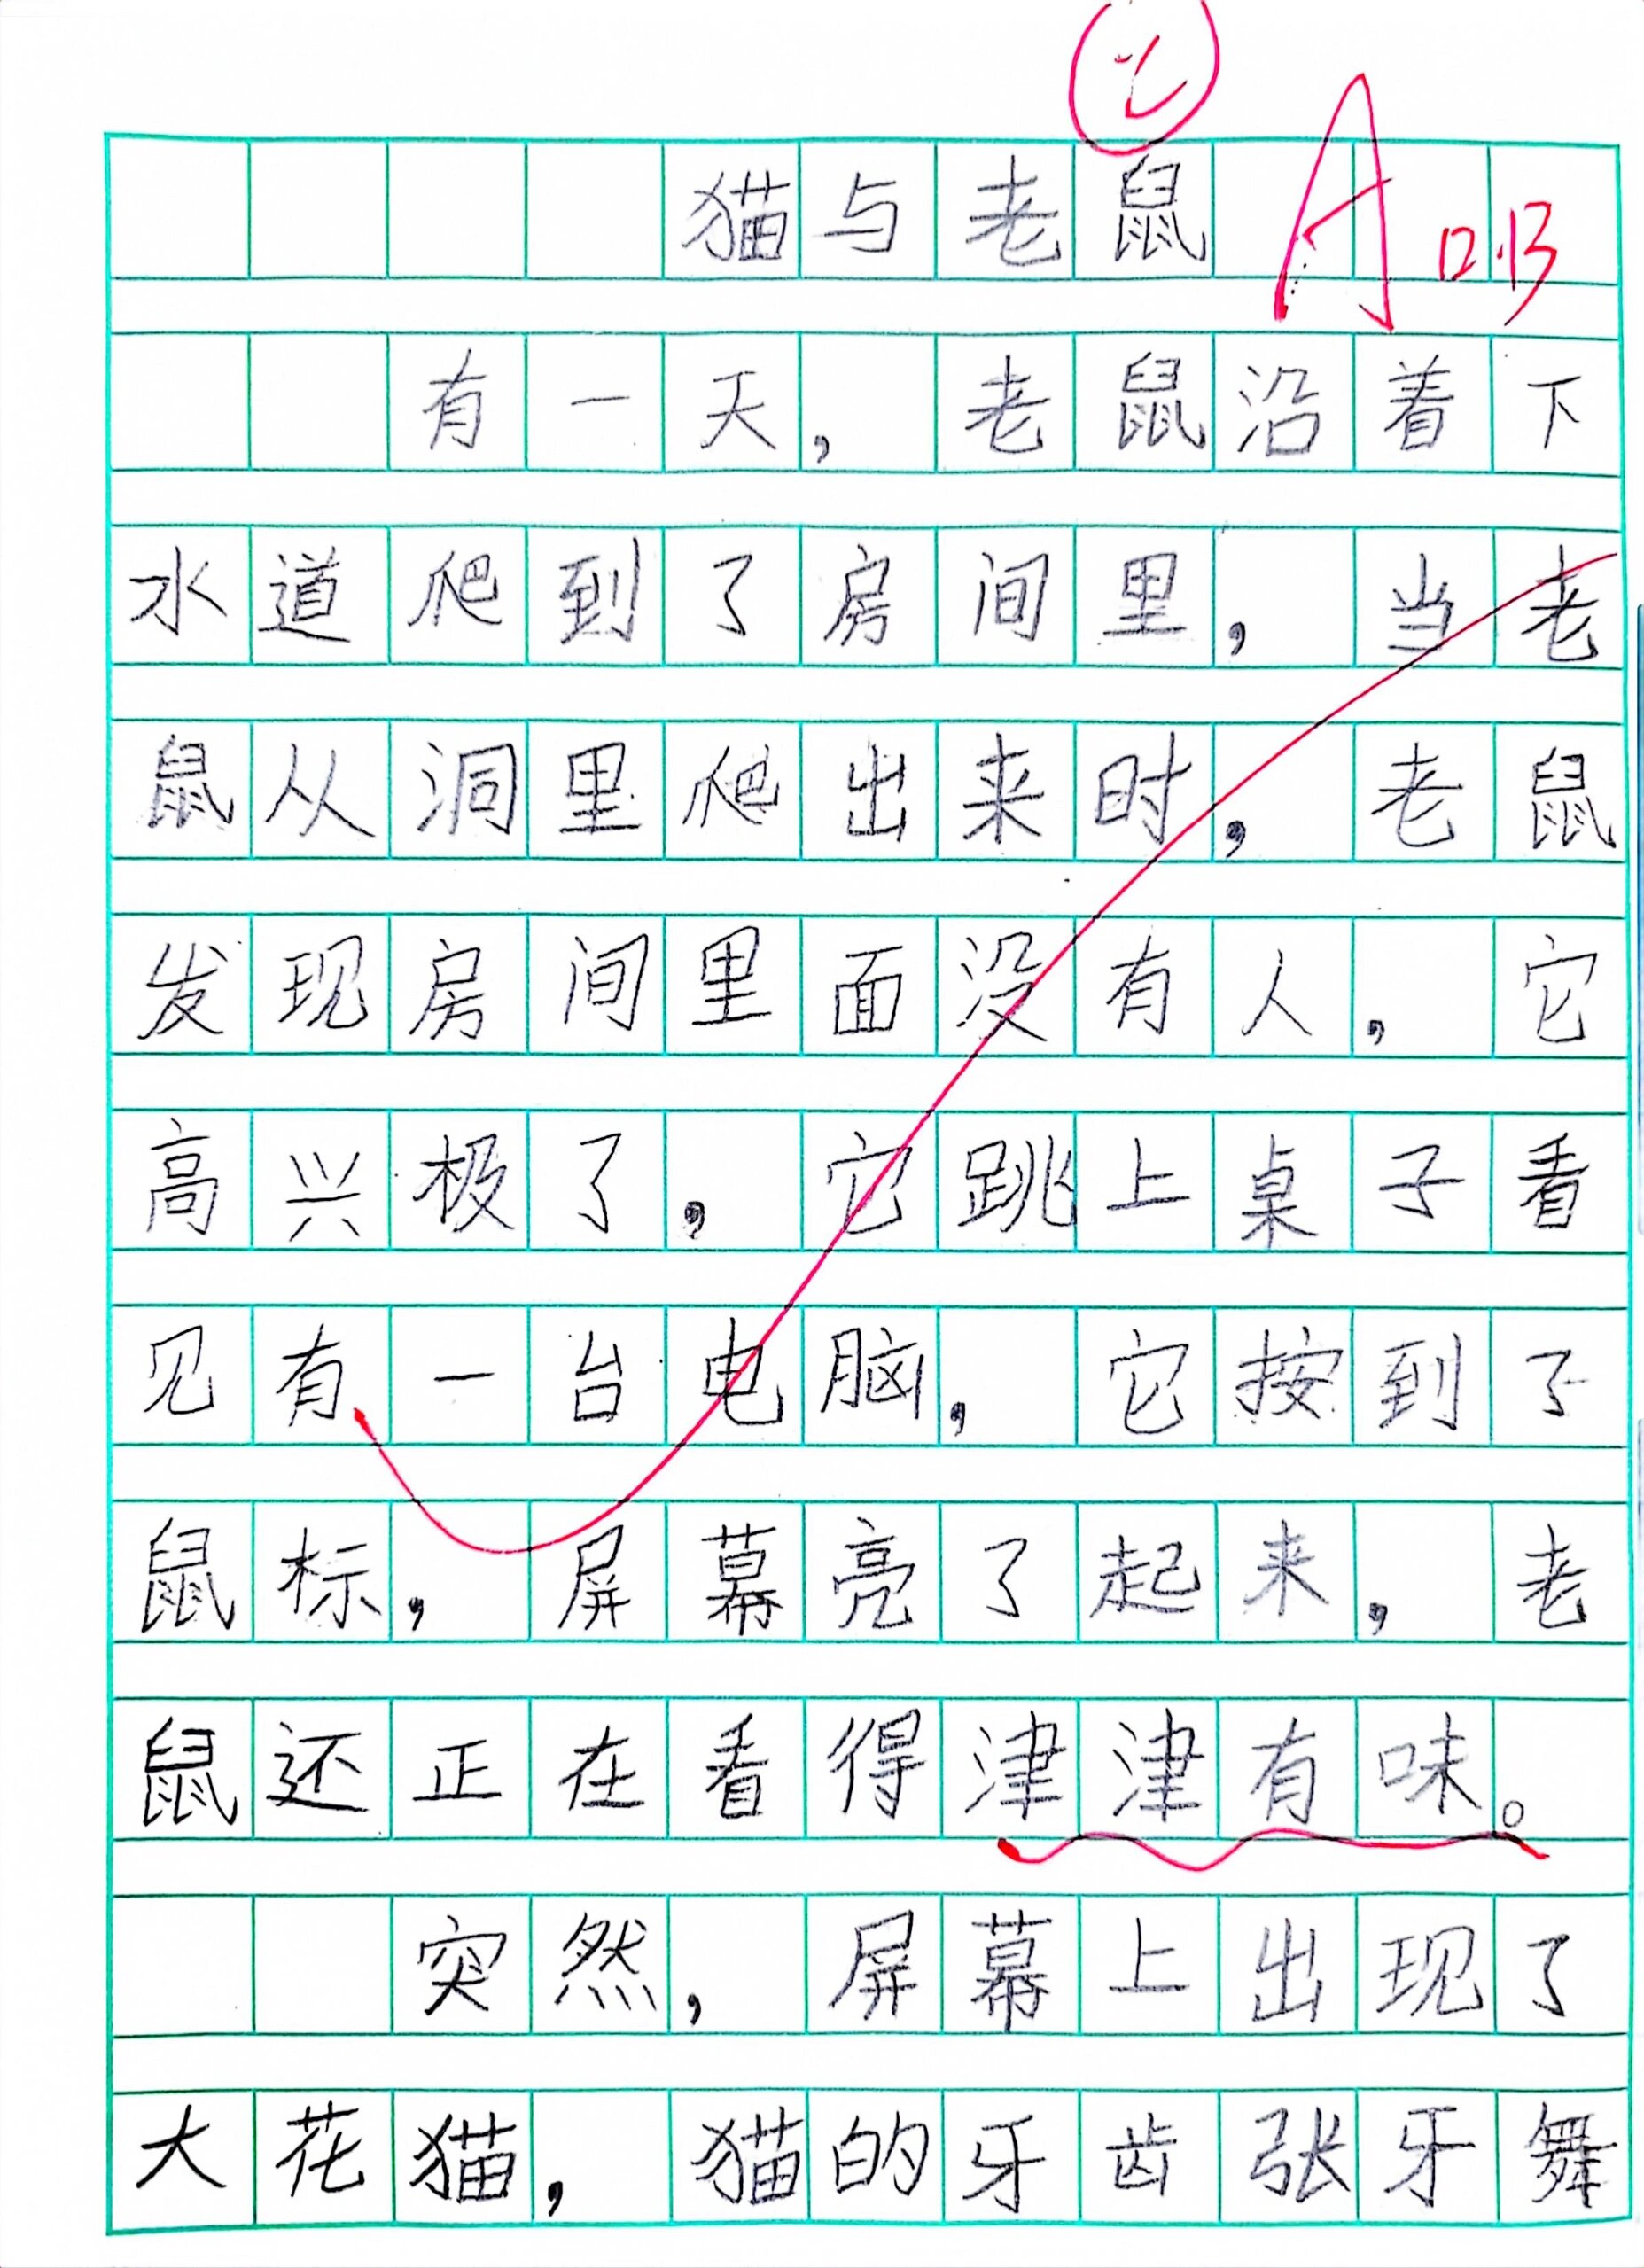 猫与老鼠
A 12.13
有一天，老鼠沿着下
水道爬到了房间里，当老
鼠从洞里爬出来时，老鼠
发现房间里面没有人，它
高兴极了，它跳上桌子看
见有一台电脑，它按到了
鼠标，屏幕亮了起来，老
鼠还正在看得津津有味。
突然，屏幕上出现了
大花猫，猫的牙齿张牙舞